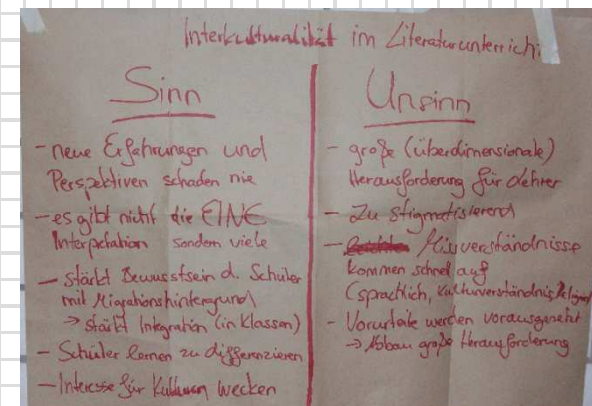 Interkulturalität im Literaturunterricht
Sinn
- neue Erfahrungen und
Perspektiven schaden nie
- es gibt nicht die EINE
Interpretation sondern viele
- stärkt Bewusstsein d. Schüler
mit Migrationshintergrund
→ stärkt Integration (in Klassen)
- Schüler lernen zu differenzieren
- Interesse für Kulturen wecken
Unsinn
- große (überdimensionale)
Herausforderung für Lehrer
- zu stigmatisierend
- Missverständnisse
kommen schnell auf
(sprachlich, Kulturverständnis, Religion)
- Vorurteile werden vorausgesetzt
→ Abbau große Herausforderung